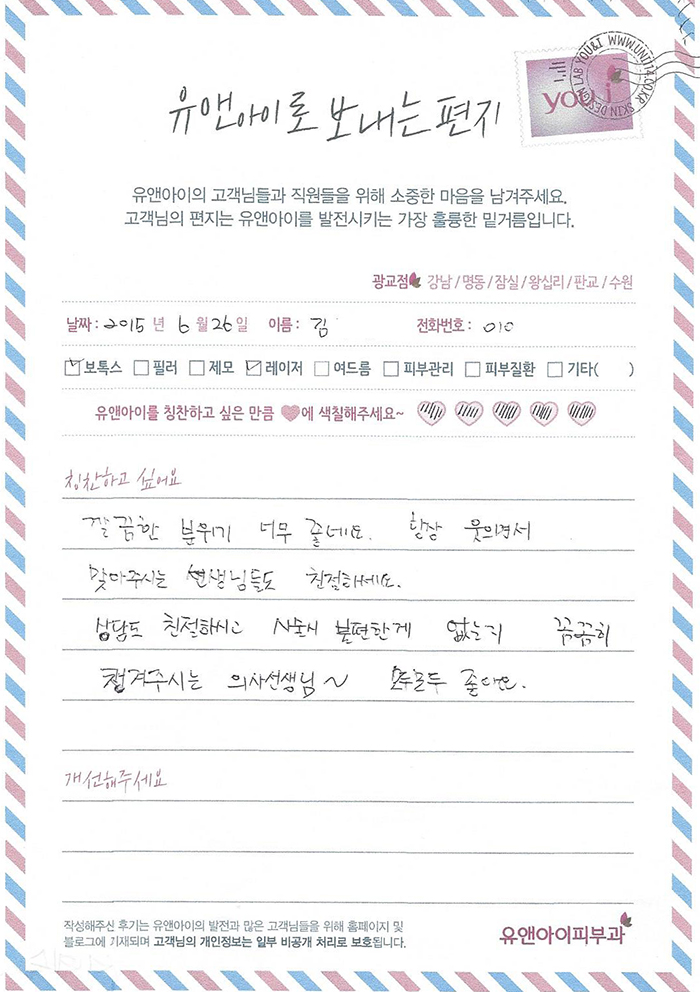 유앤아이로 보내는 편지
you i
SKIN DESIGN LAB YOU&I WWW.UNI114.CO.KR
유앤아이의 고객님들과 직원들을 위해 소중한 마음을 남겨주세요.
고객님의 편지는 유앤아이를 발전시키는 가장 훌륭한 밑거름입니다.
광교점 강남 / 명동 / 잠실 / 왕십리 / 판교 / 수원
날짜 : 2015 년 6 월 26 일 이름 : 김 전화번호 : 010
보톡스 필러 제모 레이저 여드름 피부관리 피부질환 기타( )
유앤아이를 칭찬하고 싶은 만큼 에 색칠해주세요~
칭찬하고 싶어요
깔끔한 분위기 너무 좋네요. 항상 웃으면서
맞아주시는 선생님들도 친절하세요.
상담도 친절하시고 시술시 불편한게 없는지 꼼꼼히
챙겨주시는 의사선생님~ 모두모두 좋아요.
개선해주세요
작성해주신 후기는 유앤아이의 발전과 많은 고객님들을 위해 홈페이지 및
블로그에 기재되며 고객님의 개인정보는 일부 비공개 처리로 보호됩니다.
유앤아이피부과